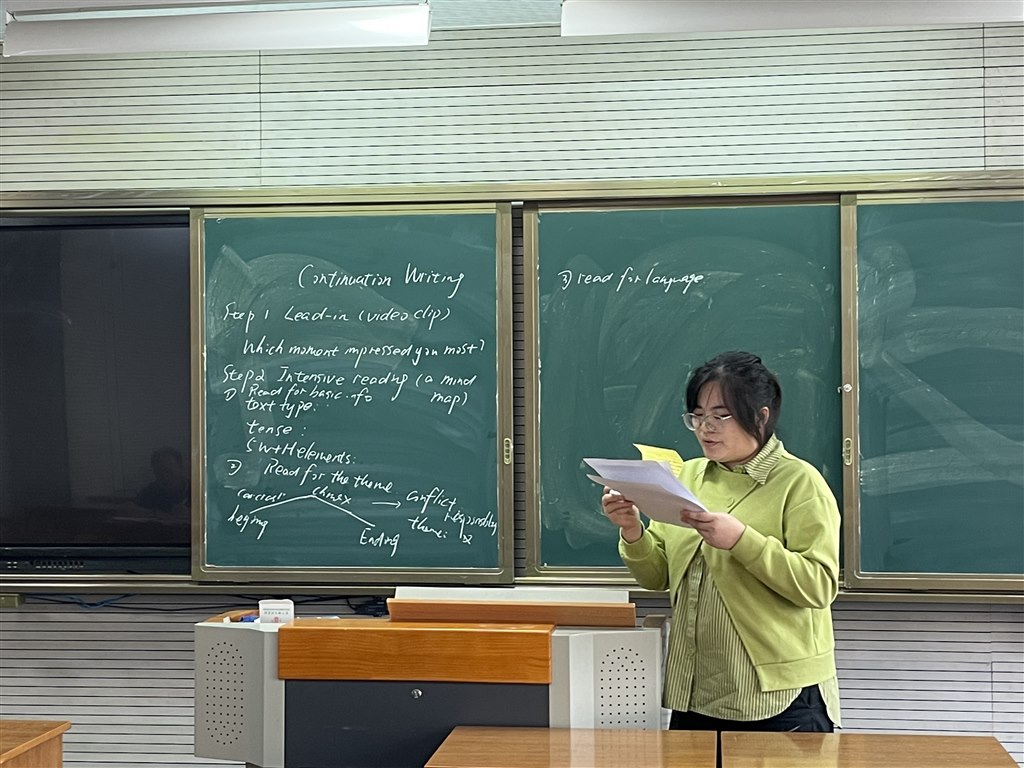 Continuation Writing
Step 1 Lead-in (video clip)
Which moment impressed you most?
Step 2 Intensive reading (a mind map)
① Read for basic info
text type:
tense:
5W+H elements:
② Read for the theme
climax → conflict
theme:
Ending
③ read for language